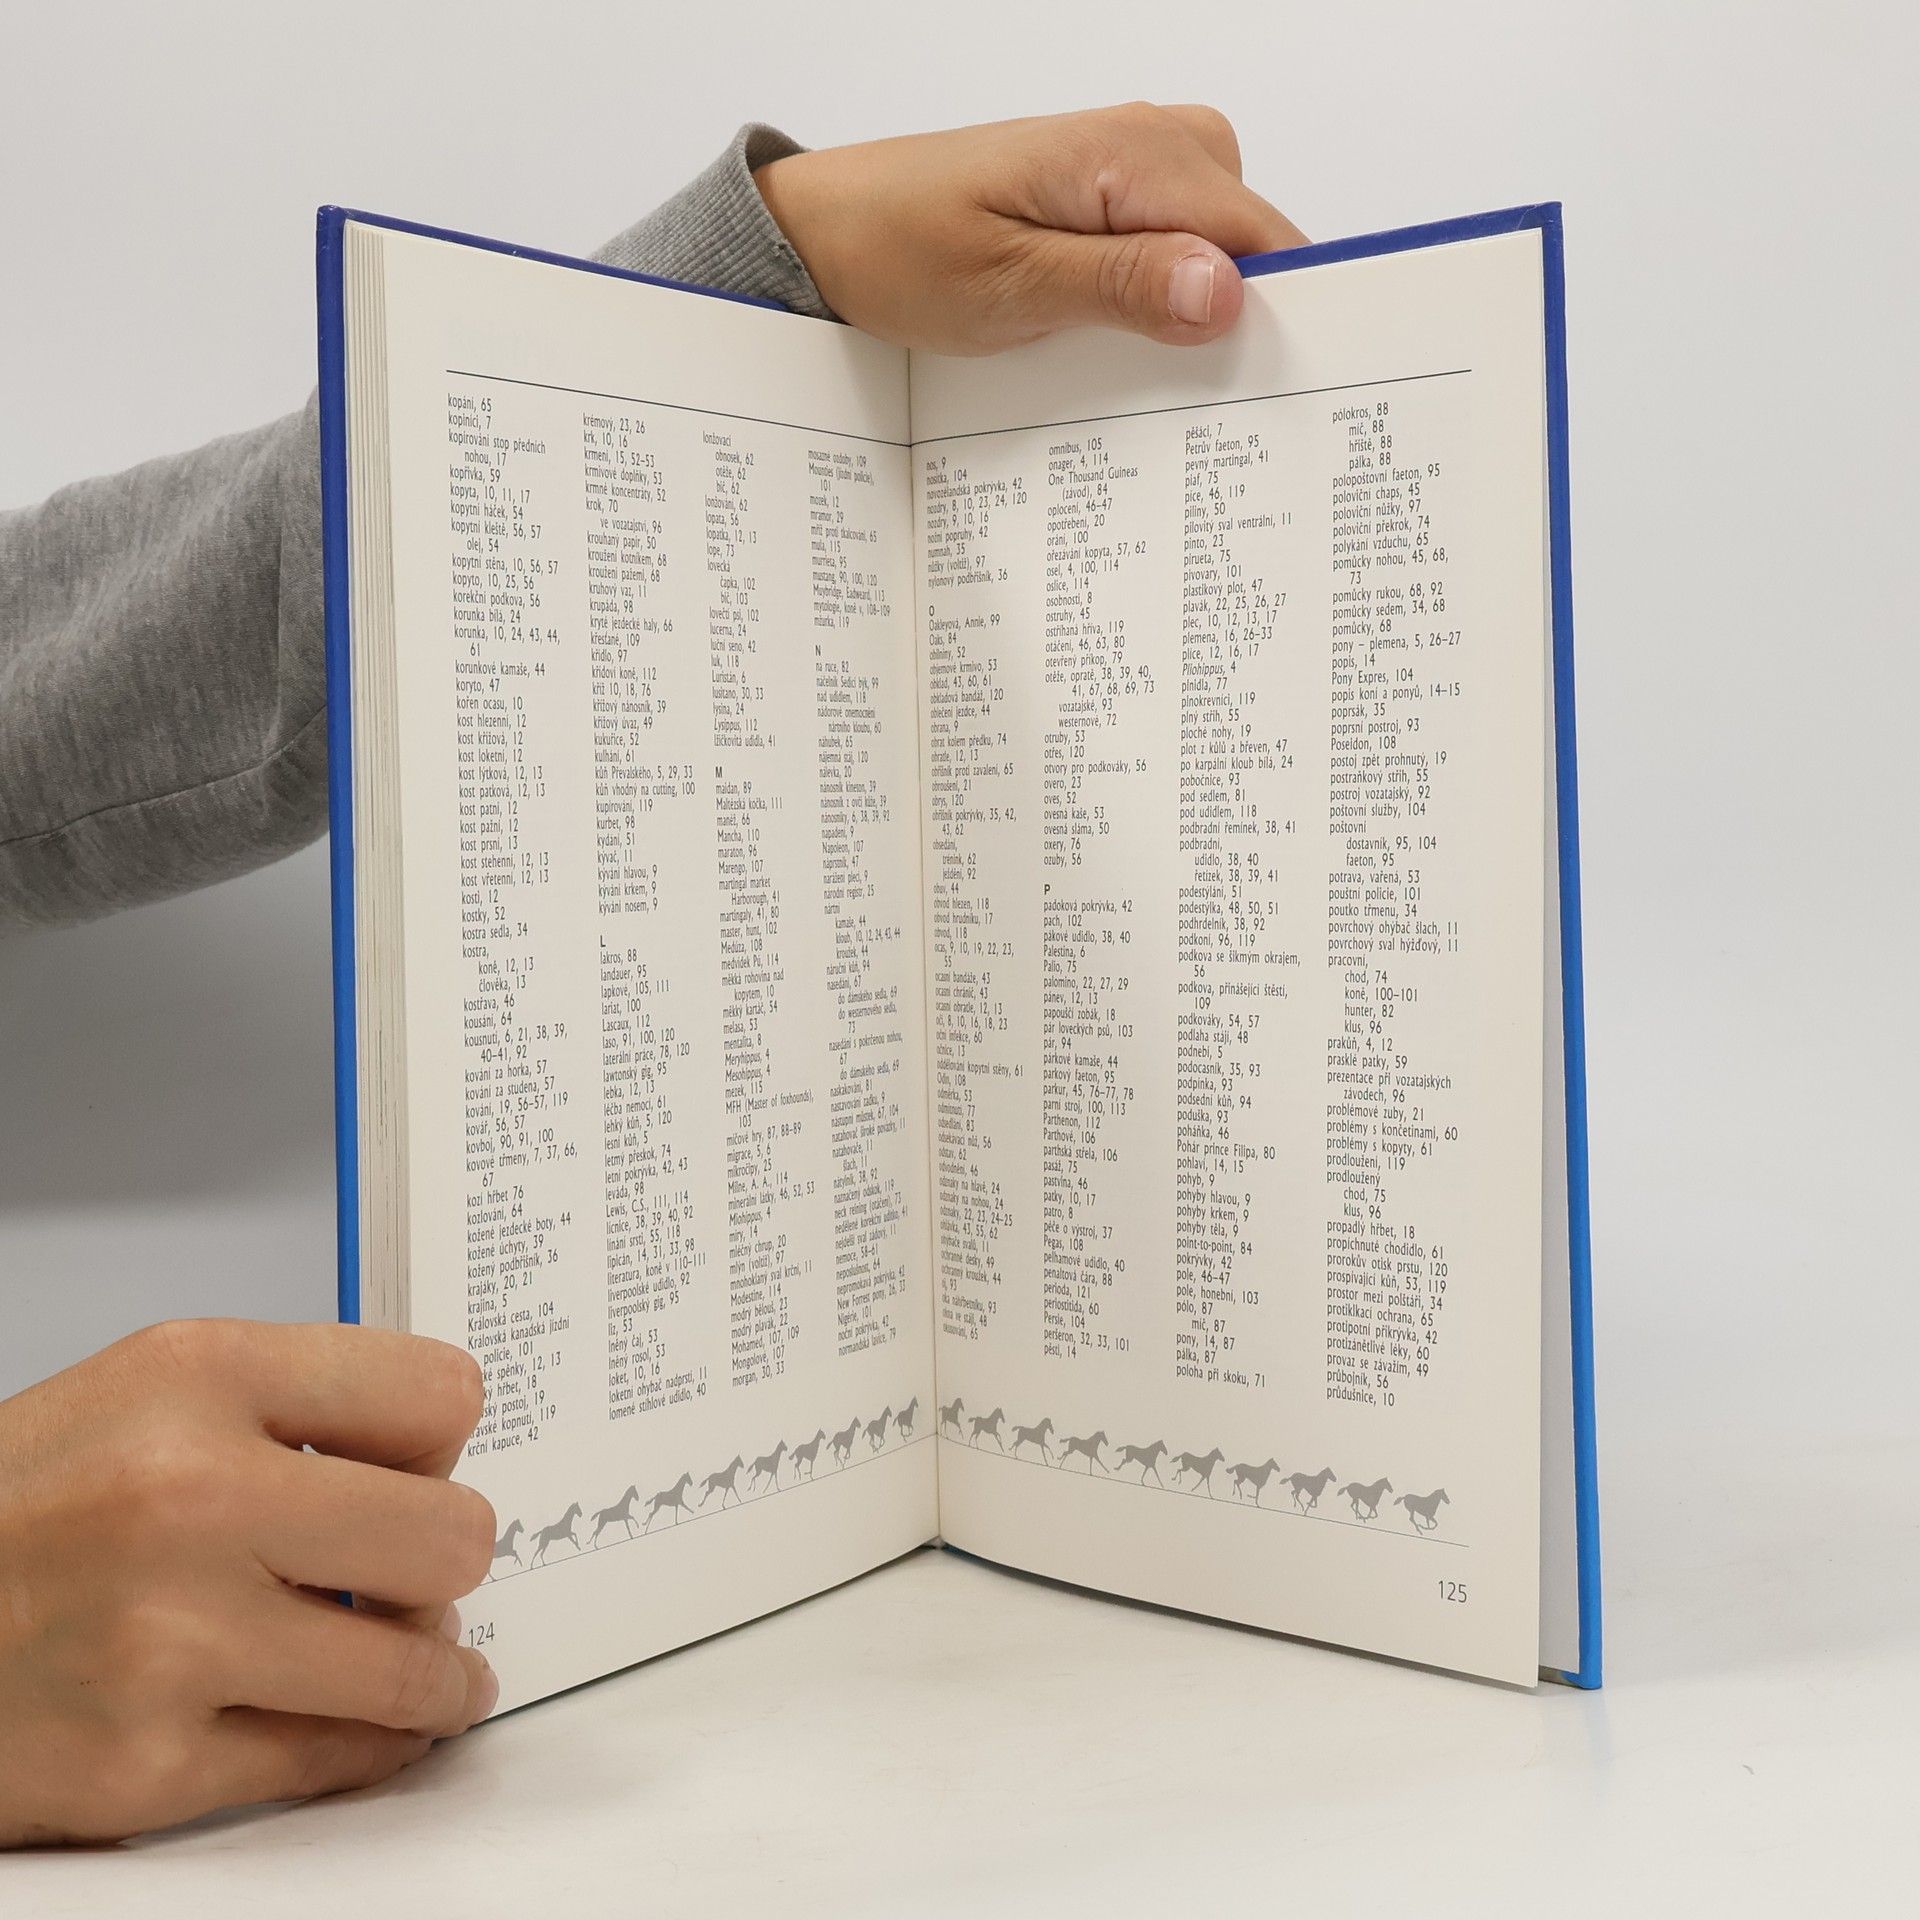 kopání, 65
kopiníci, 7
kopírování stop předních
nohou, 17
kopřivka, 59
kopyta, 10, 11, 17
kopytní háček, 54
kopytní kleště, 56, 57
olej, 54
kopytní stěna, 10, 56, 57
kopyto, 10, 25, 56
korekční podkova, 56
korunka bílá, 24
korunka, 10, 24, 43, 44,
61
korunkové kamaše, 44
koryto, 47
kořen ocasu, 10
kost hlezenní, 12
kost křížová, 12
kost loketní, 12
kost lýtková, 12, 13
kost patková, 12, 13
kost patní, 12
kost pažní, 12
kost prsní, 13
kost stehenní, 12, 13
kost vřetenní, 12, 13
kosti, 12
kostky, 52
kostra sedla, 34
kostra,
koně, 12, 13
člověka, 13
kostřava, 46
kousání, 64
kousnutí, 6, 21, 38, 39,
40–41, 92
kování za horka, 57
kování za studena, 57
kování, 19, 56–57, 119
kovář, 56, 57
kovboj, 90, 91, 100
kovové třmeny, 7, 37, 66,
67
kozí hřbet 76
kozlování, 64
kožené jezdecké boty, 44
kožené úchyty, 39
kožený podbřišník, 36
krajáky, 20, 21
krajina, 5
Královská cesta, 104
Královská kanadská jízdní
policie, 101
spěnky, 12, 13
hřbet, 18
postoj, 19
kopnutí, 119
krční kapuce, 42
krémový, 23, 26
krk, 10, 16
krmení, 15, 52–53
krmivové doplňky, 53
krmné koncentráty, 52
krok, 70
ve vozatajství, 96
krouhaný papír, 50
kroužení kotníkem, 68
kroužení pažemi, 68
kruhový vaz, 11
krupáda, 98
kryté jezdecké haly, 66
křesťané, 109
křídlo, 97
křídoví koně, 112
kříž 10, 18, 76
křížový nánosník, 39
křížový úvaz, 49
kukuřice, 52
kulhání, 61
kůň Převalského, 5, 29, 33
kůň vhodný na cutting, 100
kupírování, 119
kurbet, 98
kydání, 51
kývač, 11
kývání hlavou, 9
kývání krkem, 9
kývání nosem, 9
L
lakros, 88
landauer, 95
lapkové, 105, 111
lariat, 100
Lascaux, 112
laso, 91, 100, 120
laterální práce, 78, 120
lawtonský gig, 95
lebka, 12, 13
léčba nemocí, 61
lehký kůň, 5, 120
lesní kůň, 5
letmý přeskok, 74
letní pokrývka, 42, 43
leváda, 98
Lewis, C.S., 111, 114
lícnice, 38, 39, 40, 92
línání srsti, 55, 118
lipicán, 14, 31, 33, 98
literatura, koně v 110–111
liverpoolské udidlo, 92
liverpoolský gig, 95
líz, 53
lněný čaj, 53
lněný rosol, 53
loket, 10, 16
loketní ohybač nadprstí, 11
lomené stihlové udidlo, 40
lonžovací
obnosek, 62
otěže, 62
bič, 62
lonžování, 62
lopata, 56
lopatka, 12, 13
lope, 73
lovecká
čapka, 102
bič, 103
lovečtí psi, 102
lucerna, 24
luční seno, 42
luk, 118
Luristán, 6
lusitano, 30, 33
lysina, 24
Lysippus, 112
lžičkovitá udidla, 41
M
maidan, 89
Maltézská kočka, 111
manéž, 66
Mancha, 110
maraton, 96
Marengo, 107
martingal market
Harborough, 41
martingaly, 41, 80
master, hunt, 102
Medúza, 108
medvídek Pú, 114
měkká rohovina nad
kopytem, 10
měkký kartáč, 54
melasa, 53
mentalita, 8
Meryhippus, 4
Mesohippus, 4
mezek, 115
MFH (Master of foxhounds),
103
míčové hry, 87, 88–89
migrace, 5, 6
mikročipy, 25
Milne, A. A., 114
minerální látky, 46, 52, 53
Miohippus, 4
míry, 14
mléčný chrup, 20
mlýn (voltiž), 97
mnohoklaný sval krční, 11
Modestine, 114
modrý bělouš, 23
modrý plavák, 22
Mohamed, 107, 109
Mongolové, 107
morgan, 30, 33
mosazné ozdoby, 109
Mounties (jízdní policie),
101
mozek, 12
mramor, 29
mříž proti tkalcování, 65
mula, 115
murrieta, 95
mustang, 90, 100, 120
Muybridge, Eadweard, 113
mytologie, koně v, 108–109
mžurka, 119
N
na ruce, 82
náčelník Sedící býk, 99
nad udidlem, 118
nádorové onemocnění
nártního kloubu, 60
náhubek, 65
nájemná stáj, 120
nálevka, 20
nánosník kineton, 39
nánosník z ovčí kůže, 39
nánosníky, 6, 38, 39, 92
napadení, 9
Napoleon, 107
náprstník, 47
naražení plecí, 9
národní registr, 25
nártní
kamaše, 44
kloub, 10, 12, 24, 43, 44
kroužek, 44
náruční kůň, 94
nasedání, 67
do dámského sedla, 69
do westernového sedla,
73
nasedání s pokrčenou nohou,
67
do dámského sedla, 69
naskakování, 81
nastavování zadku, 9
nástupní můstek, 67, 104
natahovač široké povázky, 11
natahovače, 11
šlach, 11
nátylník, 38, 92
naznačený odskok, 119
neck reining (otáčení), 73
nedělené korekční udidlo, 41
nejdelší sval zádový, 11
nemoce, 58–61
neposlušnost, 64
nepromokavá pokrývka, 42
New Forrest pony, 26, 33
Nigérie, 101
noční pokrývka, 42
normandská lavice, 79
124
nos, 9
nosítka, 104
novozélandská pokrývka, 42
nozdry, 8, 10, 23, 24, 120
nozdry, 9, 10, 16
nožní popruhy, 42
numnah, 35
nůžky (voltiž), 97
nylonový podbřišník, 36
O
Oakleyová, Annie, 99
Oaks, 84
obilniny, 52
objemové krmivo, 53
obklad, 43, 60, 61
obkladová bandáž, 120
oblečení jezdce, 44
obrana, 9
obrat kolem předku, 74
obratle, 12, 13
obřišník proti zavalení, 65
obroušení, 21
obrys, 120
obřišník pokrývky, 35, 42,
43, 62
obsedání,
trénink, 62
ježdění, 92
obuv, 44
obvod hlezen, 118
obvod hrudníku, 17
obvod, 118
ocas, 9, 10, 19, 22, 23,
55
ocasní bandáže, 43
ocasní chránič, 43
ocasní obratle, 12, 13
oči, 8, 10, 16, 18, 23
oční infekce, 60
očnice, 13
oddělování kopytní stěny, 61
Odin, 108
odměrka, 53
odmítnutí, 77
odsedlání, 83
odsekávací nůž, 56
odstav, 62
odvodnění, 46
odznaky na hlavě, 24
odznaky na nohou, 24
odznaky, 22, 23, 24–25
ohlávka, 43, 55, 62
ohybače svalů, 11
ochranné desky, 49
ochranný kroužek, 44
oj, 93
oka náhřbetníku, 93
okna ve stáji, 48
okusování, 65
omnibus, 105
onager, 4, 114
One Thousand Guineas
(závod), 84
oplocení, 46–47
opotřebení, 20
orání, 100
ořezávání kopyta, 57, 62
osel, 4, 100, 114
oslice, 114
osobnosti, 8
ostruhy, 45
ostříhaná hříva, 119
otáčení, 46, 63, 80
otevřený příkop, 79
otěže, opratě, 38, 39, 40,
41, 67, 68, 69, 73
vozatajské, 93
westernové, 72
otruby, 53
otřes, 120
otvory pro podkováky, 56
overo, 23
oves, 52
ovesná kaše, 53
ovesná sláma, 50
oxery, 76
ozuby, 56
P
padoková pokrývka, 42
pach, 102
pákové udidlo, 38, 40
Palestina, 6
Palio, 75
palomino, 22, 27, 29
pánev, 12, 13
papouščí zobák, 18
pár loveckých psů, 103
pár, 94
párkové kamaše, 44
parkový faeton, 95
parkur, 45, 76–77, 78
parní stroj, 100, 113
Parthenon, 112
Parthové, 106
parthská střela, 106
pasáž, 75
pastvina, 46
patky, 10, 17
patro, 8
péče o výstroj, 37
Pegas, 108
pelhamové udidlo, 40
penaltová čára, 88
perioda, 121
periostitida, 60
Persie, 104
peršeron, 32, 33, 101
pěsti, 14
pěšáci, 7
Petrův faeton, 95
pevný martingal, 41
piaf, 75
píce, 46, 119
piliny, 50
pilovitý sval ventrální, 11
pinto, 23
pirueta, 75
pivovary, 101
plastikový plot, 47
plavák, 22, 25, 26, 27
plec, 10, 12, 13, 17
plemena, 16, 26–33
plíce, 12, 16, 17
Pliohippus, 4
plnidla, 77
plnokrevníci, 119
plný střih, 55
ploché nohy, 19
plot z kůlů a břeven, 47
po karpální kloub bílá, 24
pobočnice, 93
pod sedlem, 81
pod udidlem, 118
podbradní řemínek, 38, 41
podbradní,
udidlo, 38, 40
řetízek, 38, 39, 41
podestýlání, 51
podestýlka, 48, 50, 51
podhrdelník, 38, 92
podkoní, 96, 119
podkova se šikmým okrajem,
56
podkova, přinášející štěstí,
109
podkováky, 54, 57
podlaha stájí, 48
podnebí, 5
podocasník, 35, 93
podpinka, 93
podsední kůň, 94
poduška, 93
poháňka, 46
Pohár prince Filipa, 80
pohlaví, 14, 15
pohyb, 9
pohyby hlavou, 9
pohyby krkem, 9
pohyby těla, 9
point-to-point, 84
pokrývky, 42
pole, 46–47
pole, honební, 103
pólo, 87
míč, 87
pony, 14, 87
pálka, 87
poloha při skoku, 71
pólokros, 88
míč, 88
hřiště, 88
pálka, 88
polopoštovní faeton, 95
poloviční chaps, 45
poloviční nůžky, 97
poloviční překrok, 74
polykání vzduchu, 65
pomůcky nohou, 45, 68,
73
pomůcky rukou, 68, 92
pomůcky sedem, 34, 68
pomůcky, 68
pony – plemena, 5, 26–27
popis, 14
Pony Expres, 104
popis koní a ponyů, 14–15
poprsák, 35
poprsní postroj, 93
Poseidon, 108
postoj zpět prohnutý, 19
postraňkový střih, 55
postroj vozatajský, 92
poštovní služby, 104
poštovní
dostavník, 95, 104
faeton, 95
potrava, vařená, 53
pouštní policie, 101
poutko třmenu, 34
povrchový ohýbač šlach, 11
povrchový sval hýžďový, 11
pracovní,
chod, 74
koně, 100–101
hunter, 82
klus, 96
prakůň, 4, 12
prasklé patky, 59
prezentace při vozatajských
závodech, 96
problémové zuby, 21
problémy s končetinami, 60
problémy s kopyty, 61
prodloužení, 119
prodloužený
chod, 75
klus, 96
propadlý hřbet, 18
propíchnuté chodidlo, 61
prorokův otisk prstu, 120
prospívající kůň, 53, 119
prostor mezi polštáři, 34
protiklkací ochrana, 65
protipotní přikrývka, 42
protizánětlivé léky, 60
provaz se závažím, 49
průbojník, 56
průdušnice, 10
125